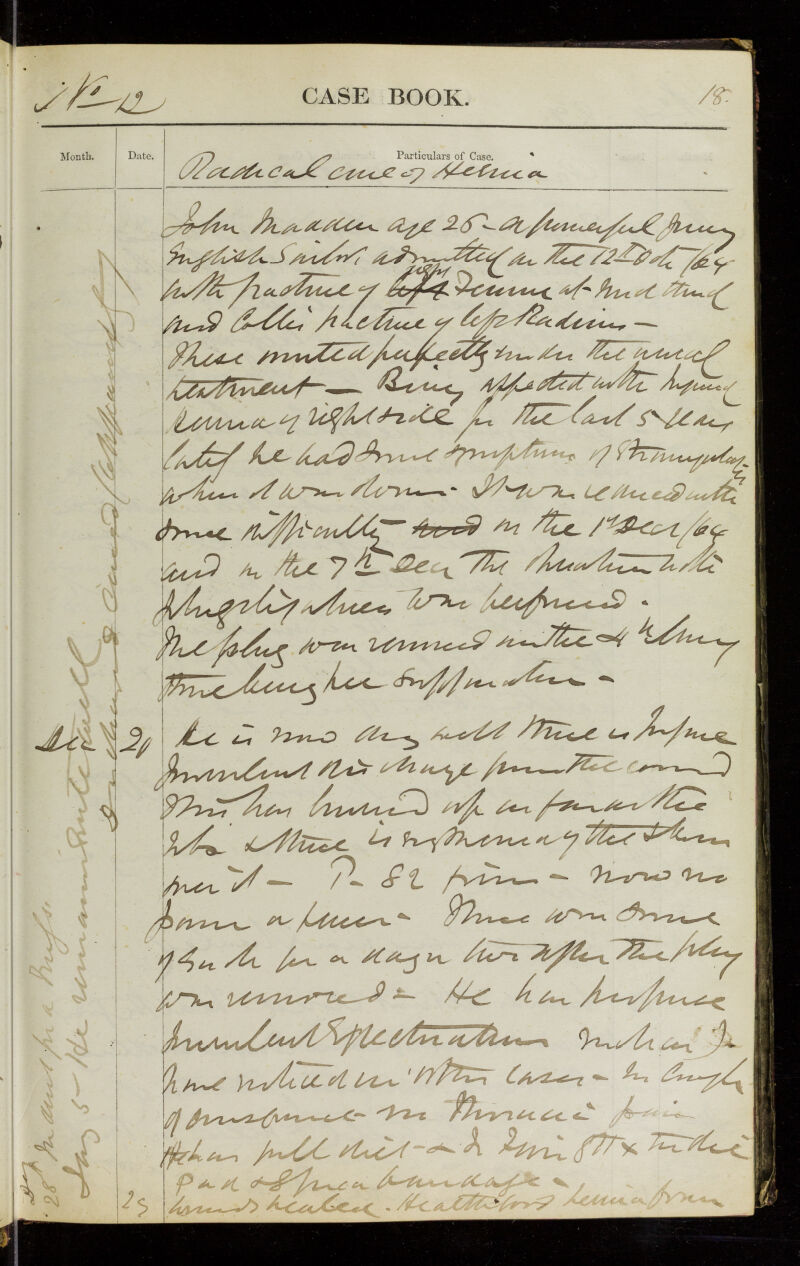 No 12
CASE BOOK.
18.
Month.
Date.
Particulars of Case.
Radical cure of Hernia
John Madden age 26 - a powerful young
English Sailor, admitted on the 12th Oct /64
with fracture of left right Femur at mid third
and Colles fracture of left Radius -
These united perfectly under the usual
treatment - Being affected with Inguinal
hernia of right side for the last 5 years
lately he had some symptoms of strangulation
when it was down - It was reduced with
some difficulty and on the 1st Decr /64
and on the 7th Decr the operation with
plug & ligatures was performed.
The plug was removed on the 4th day
there being free suppuration -
Dec 20 he is now doing well there is profuse
purulent discharge from the wound
This has burrowed up as far as the
& there is redness of the skin
over it - P - 82 firm - now no
pain or fever - There was some
of each for a day or two after the plug
was removed - He has profuse
purulent Expectoration such as I
have noticed in other cases - no cough
of consequence - no Thoracic pain
He has full diet - &
Pad & Spica bandage -
29 wounds healed. Health good hernia firm
Dec 28
Jany 5 - He remains quite well
& discharged cured